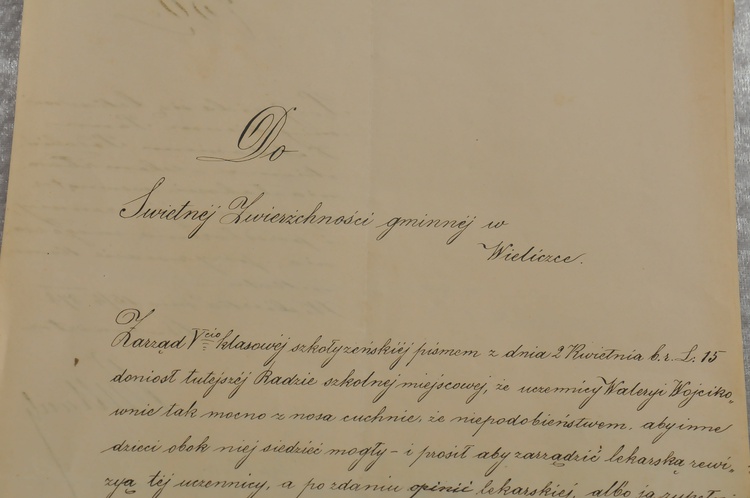 Do
Swietnéj Zwierzchności gminnéj w
Wieliczce.
Zarząd Vcio klasowéj szkoły zeńskiéj pismem z dnia 2 Kwietnia b.r. L. 15
doniosł tutejszéj Radzie szkolnej miejscowej, że uczennicy Waleryi Wojciko-
wnie tak mocno z nosa cuchnie, że niepodobieństwem, aby inne
dzieci obok niej siedzieć mogły – i prosił aby zarządzić lekarską rewi-
zyą téj uczennicy, a po zdaniu opinii lekarskiéj, albo ją